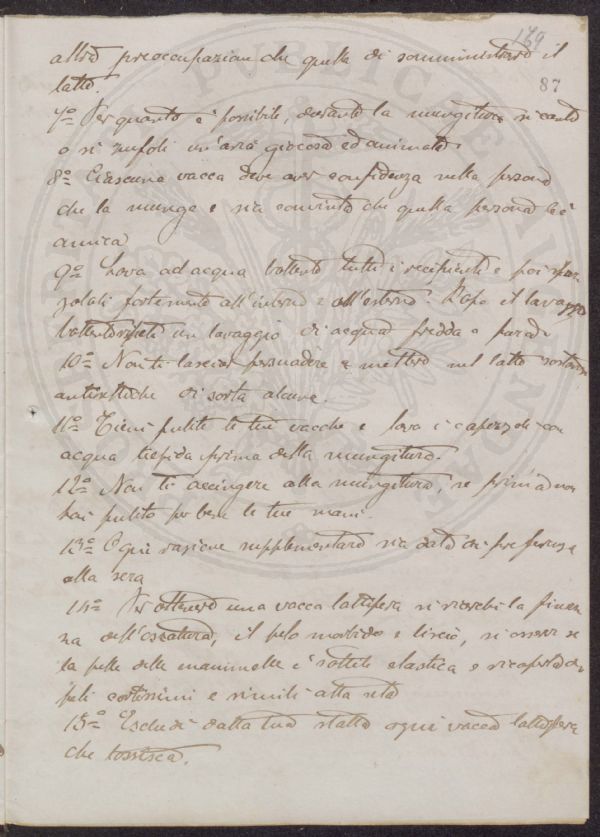 169
87
altra preoccupazione che quella di somministrare il
latte.
7º Per quanto è possibile, durante la mungitura si canti
o si zufoli un'aria giocosa ed animata.
8º Ciascuna vacca deve aver confidenza nella persona
che la munge e sia convinta che quella persona le è
amica
9º Lava ad acqua bollente tutti i recipienti e poi spaz
zolali fortemente all'interno e all'esterno. Dopo il lavaggio
bollente un lavaggio di acqua fredda e pura.
10º Non ti lasciar persuadere a mettere nel latte sostanze
antisettiche di sorta alcuna.
11º Tieni pulite le tue vacche e lava i capezzoli con
acqua tiepida prima della mungitura.
12º Non ti accingere alla mungitura, se prima non
hai pulito per bene le tue mani.
13º Ogni razione supplementare sia data di preferenza
alla sera
14º Per ottenere una vacca lattifera si ricerchi la finez
za dell'ossatura, il pelo morbido e liscio, si osservi se
la pelle delle mammelle è sottile elastica e ricoperta di
peli cortissimi e simili alla seta
15º Escludi dalla tua stalla ogni vacca lattifera
che tossisca.